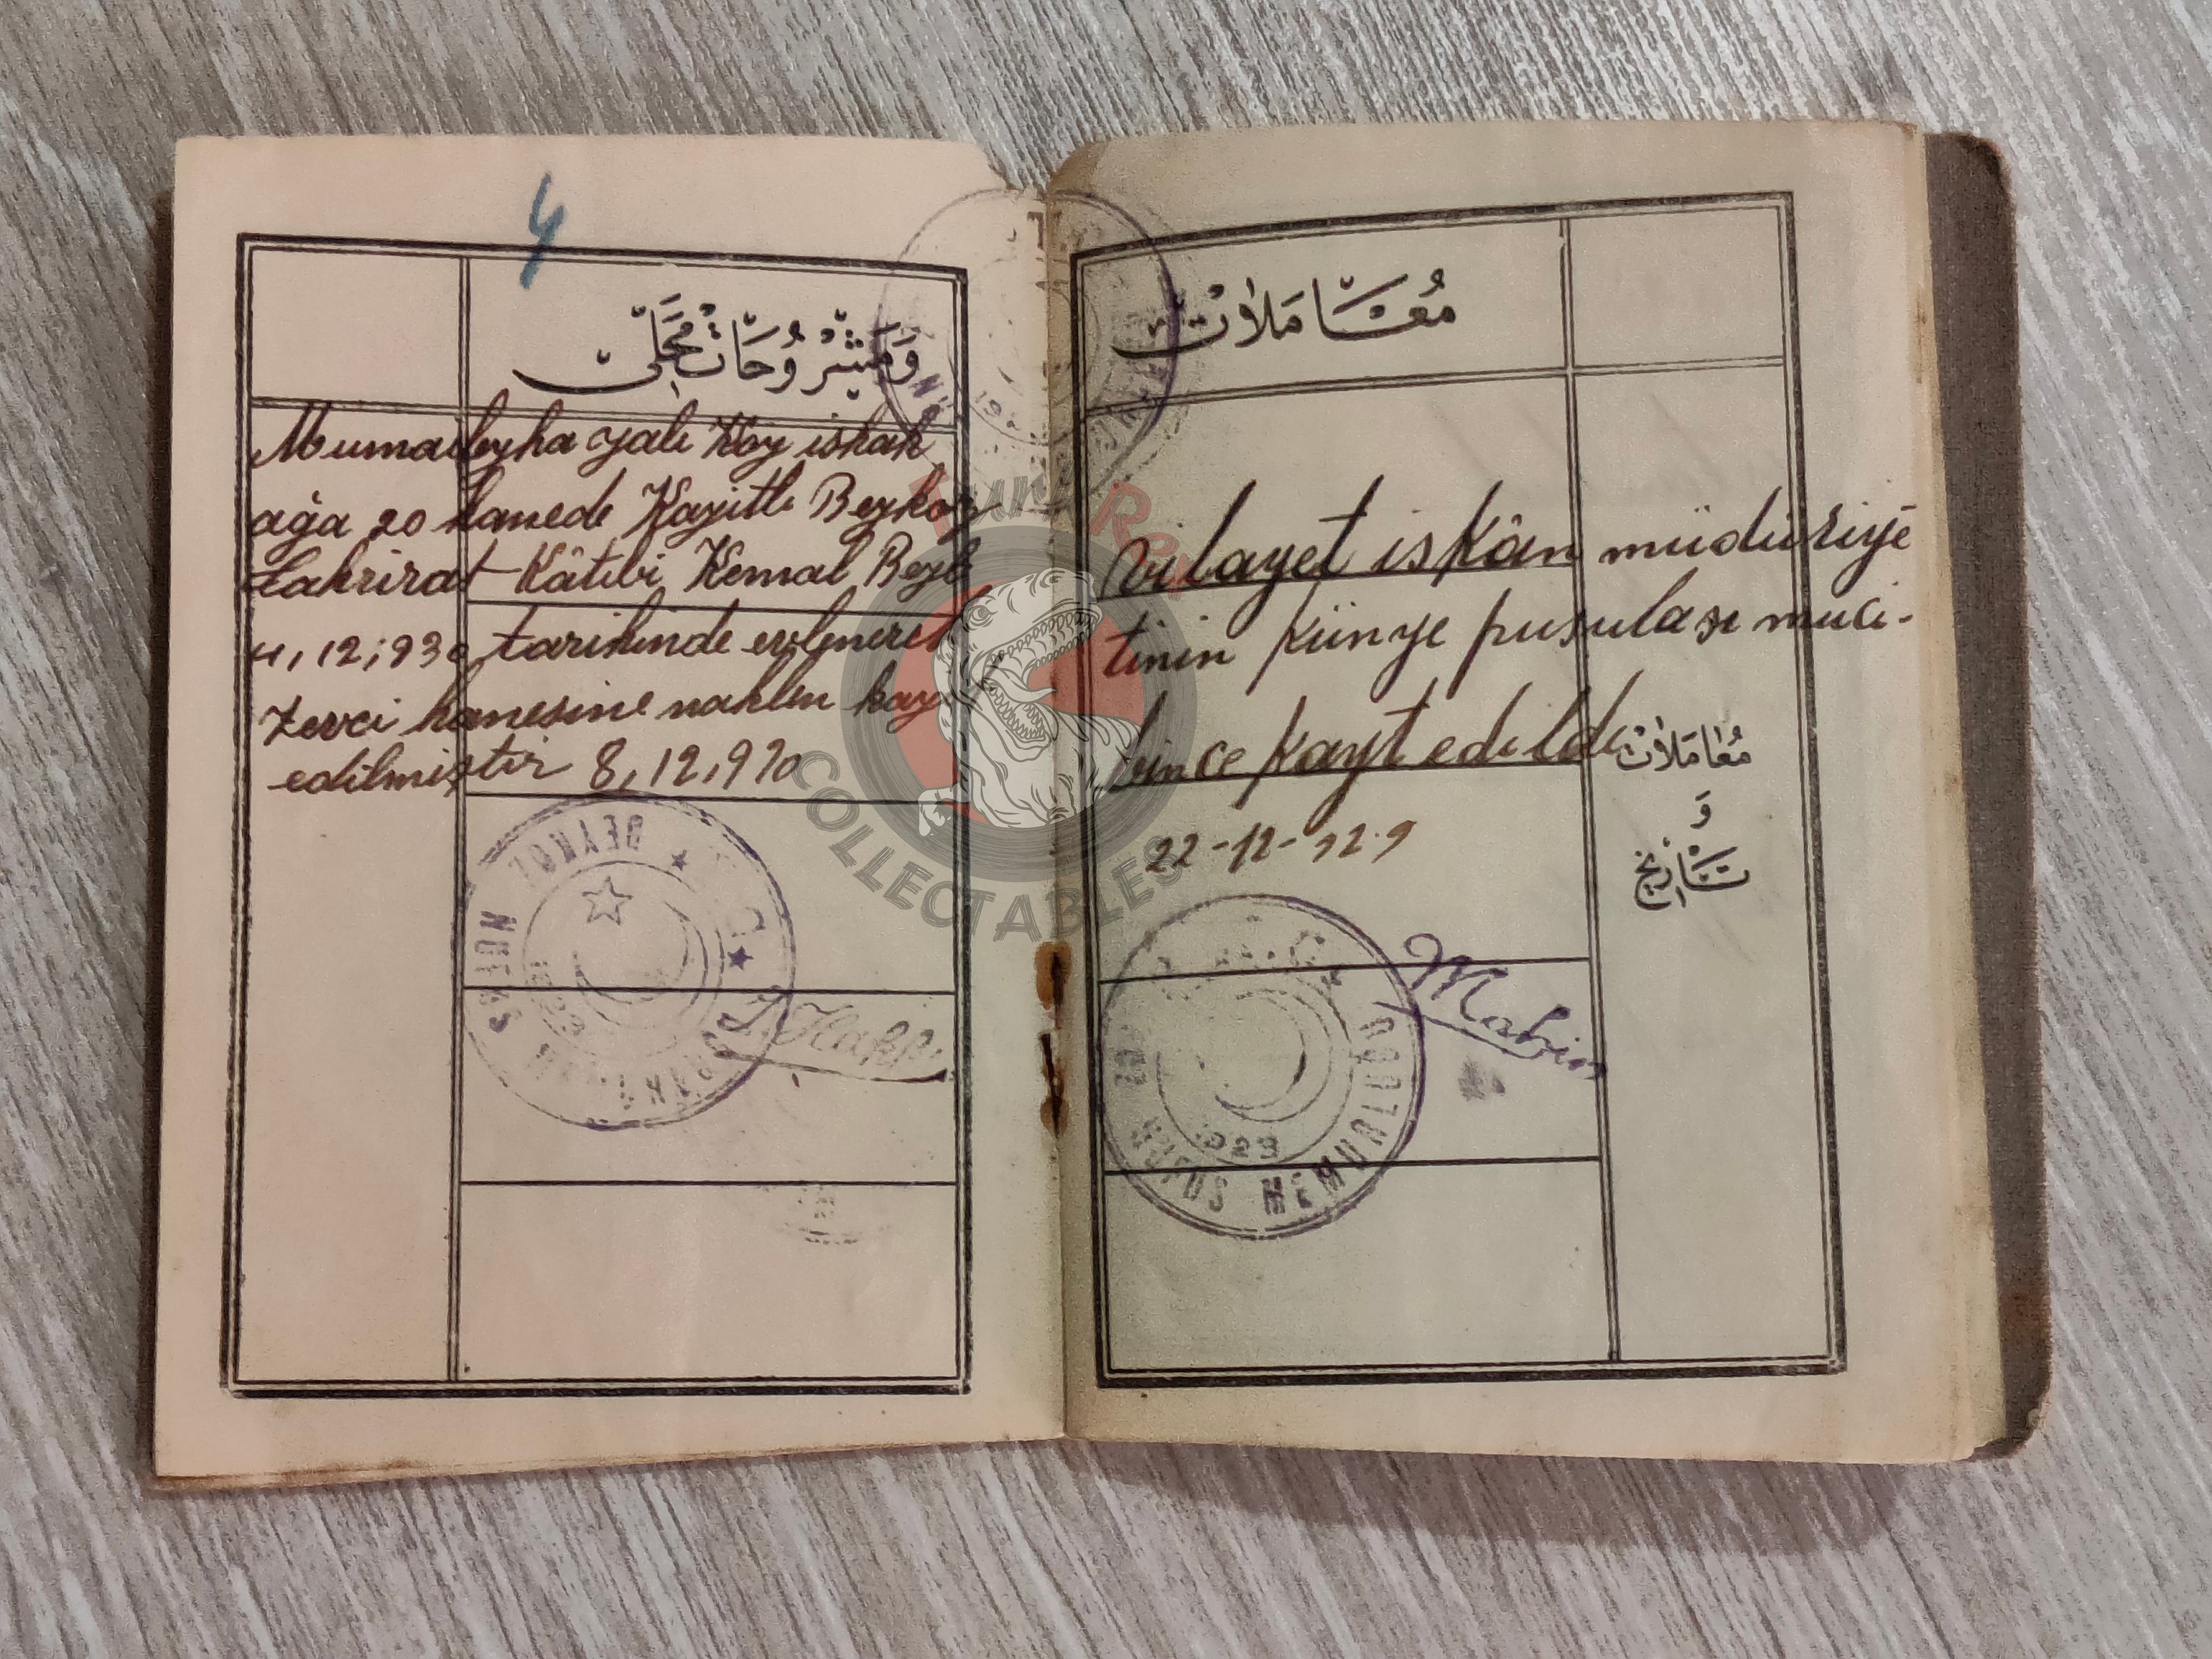 4
وَمَشْرُوحَاتْ مَحَلِّى
Mumaileyha yalı Köy ishak
ağa 20 hanede Kayitlı Beykoz
tahrirat Kâtıbi Kemal Beyle
4,12,930 tarihinde evlenerek
Zevci hanesine naklen kayt
edilmiştir 8,12,930
BEYKOZ
NÜFUS
Hakkı
مُعَامَلَاتْ
vilayet iskân müdüriye
tinin künye pusulası muci-
bince kayt edildi
22-12-929
مُعَامَلَاتْ
وَ
تَارِيخْ
Mahir
T.C.
NÜFUS MEMURLUĞU
1929
Rex
COLLECTABLES